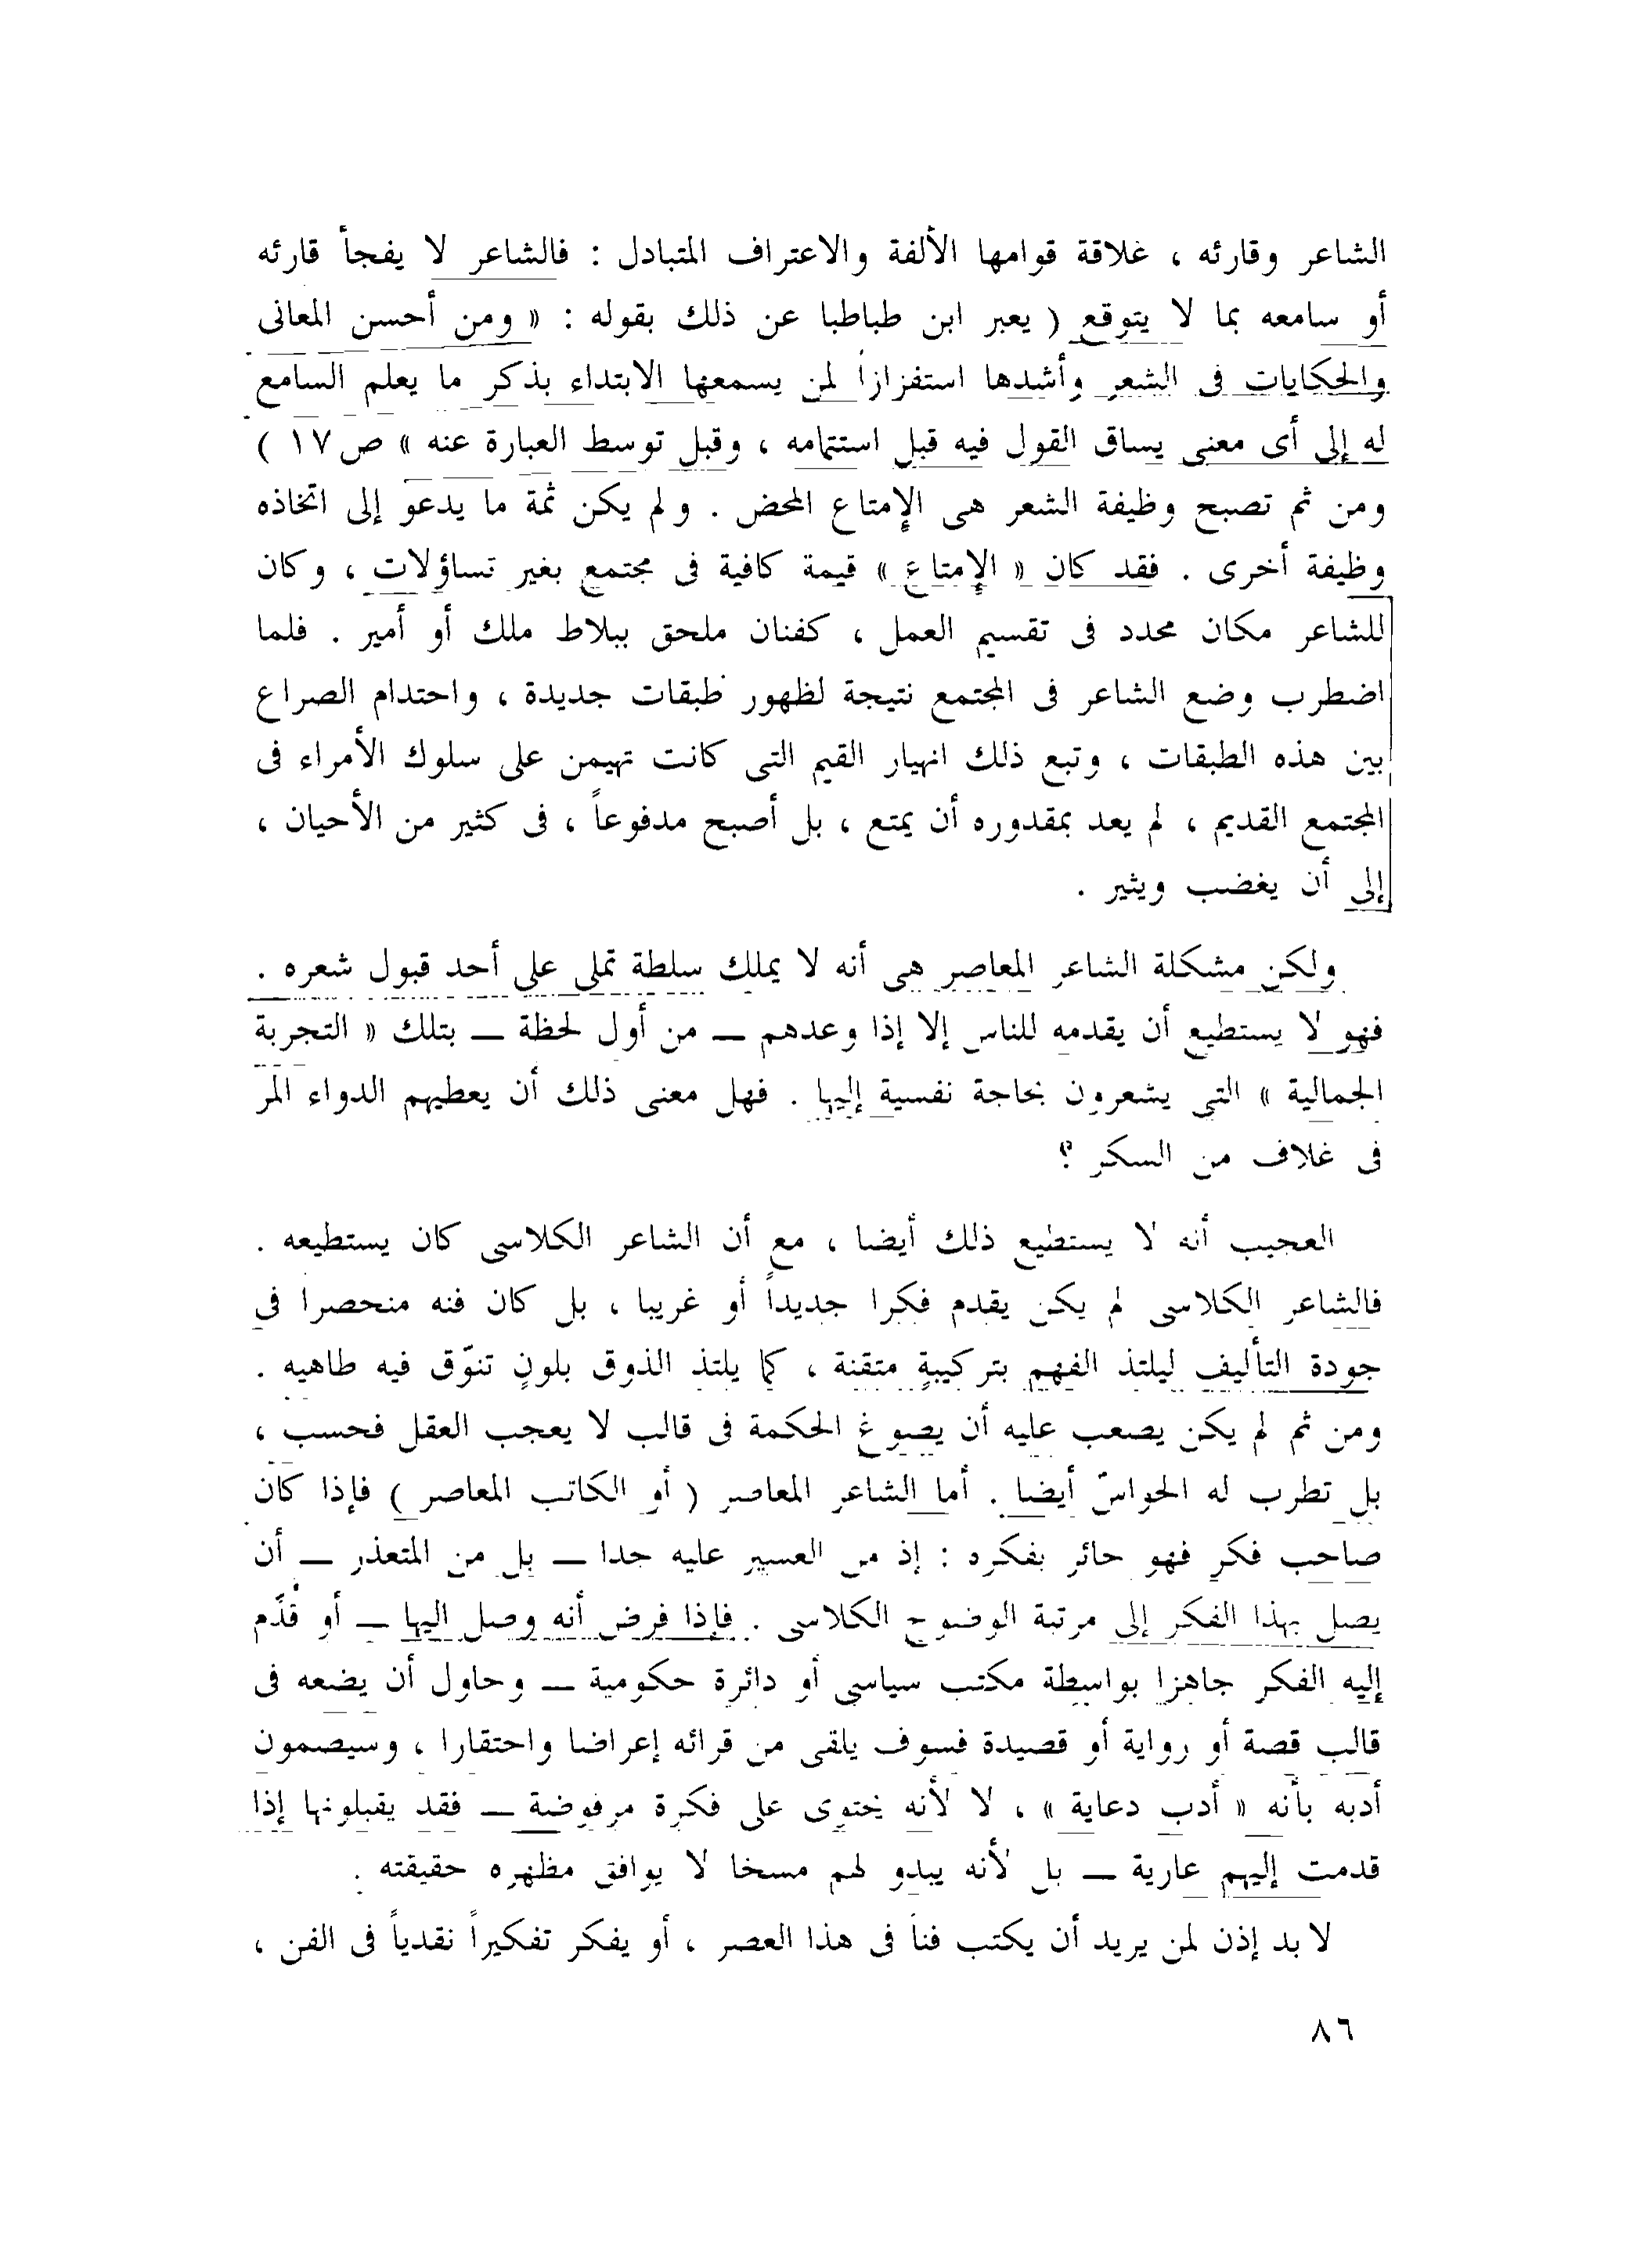 الشاعر وقارئه ، علاقة قوامها الألفة والاعتراف المتبادل : فالشاعر لا يفجأ قارئه
أو سامعه بما لا يتوقع ( يعبر ابن طباطبا عن ذلك بقوله : « ومن أحسن المعانى
والحكايات فى الشعر وأشدها استفزازاً لمن يسمعها الابتداء بذكر ما يعلم السامع
له إلى أى معنى يساق القول فيه قبل استتمامه ، وقبل توسط العبارة عنه » ص ١٧ )
ومن ثم تصبح وظيفة الشعر هى الإمتاع المحض . ولم يكن ثمة ما يدعو إلى اتخاذه
وظيفة أخرى . فقد كان « الإمتاع » قيمة كافية فى مجتمع بغير تساؤلات ، وكان
للشاعر مكان محدد فى تقسيم العمل ، كفنان ملحق ببلاط ملك أو أمير . فلما
اضطرب وضع الشاعر فى المجتمع نتيجة لظهور طبقات جديدة ، واحتدام الصراع
بين هذه الطبقات ، وتبع ذلك انهيار القيم التى كانت تهيمن على سلوك الأمراء فى
المجتمع القديم ، لم يعد بمقدوره أن يمتع ، بل أصبح مدفوعاً ، فى كثير من الأحيان ،
إلى أن يغضب ويثير .
ولكن مشكلة الشاعر المعاصر هى أنه لا يملك سلطة تملى على أحد قبول شعره .
فهو لا يستطيع أن يقدمه للناس إلا إذا وعدهم — من أول لحظة — بتلك « التجربة
الجمالية » التى يشعرون بحاجة نفسية إليها . فهل معنى ذلك أن يعطيهم الدواء المر
فى غلاف من السكر ؟
العجيب أنه لا يستطيع ذلك أيضا ، مع أن الشاعر الكلاسى كان يستطيعه .
فالشاعر الكلاسى لم يكن يقدم فكرا جديداً أو غريبا ، بل كان فنه منحصرا فى
جودة التأليف ليلتذ الفهم بتركيبةٍ متقنة ، كما يلتذ الذوق بلونٍ تنوّق فيه طاهيه .
ومن ثم لم يكن يصعب عليه أن يصوغ الحكمة فى قالب لا يعجب العقل فحسب ،
بل تطرب له الحواسّ أيضا . أما الشاعر المعاصر ( أو الكاتب المعاصر ) فإذا كان
صاحب فكر فهو حائر بفكره : إذ من العسير عليه جدا — بل من المتعذر — أن
يصل بهذا الفكر إلى مرتبة الوضوح الكلاسى . فإذا فرض أنه وصل اليها — أو قُدِّم
إليه الفكر جاهزا بواسطة مكتب سياسى أو دائرة حكومية — وحاول أن يضعه فى
قالب قصة أو رواية أو قصيدة فسوف يلقى من قرائه إعراضا واحتقارا ، وسيصمون
أدبه بأنه « أدب دعاية » ، لا لأنه يحتوى على فكرة مرفوضة — فقد يقبلونها إذا
قدمت إليهم عارية — بل لأنه يبدو لهم مسخا لا يوافق مظهره حقيقته .
لا بد إذن لمن يريد أن يكتب فناً فى هذا العصر ، أو يفكر تفكيراً نقدياً فى الفن ،
٨٦